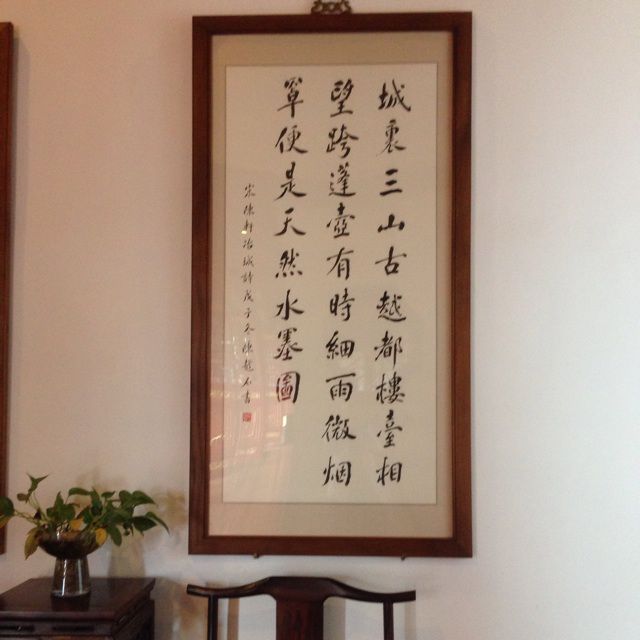 城裏三山古越都樓臺相
望跨蓬壺有時細雨微烟
罩便是天然水墨圖
宋陳軒冶城詩戊子冬陳書